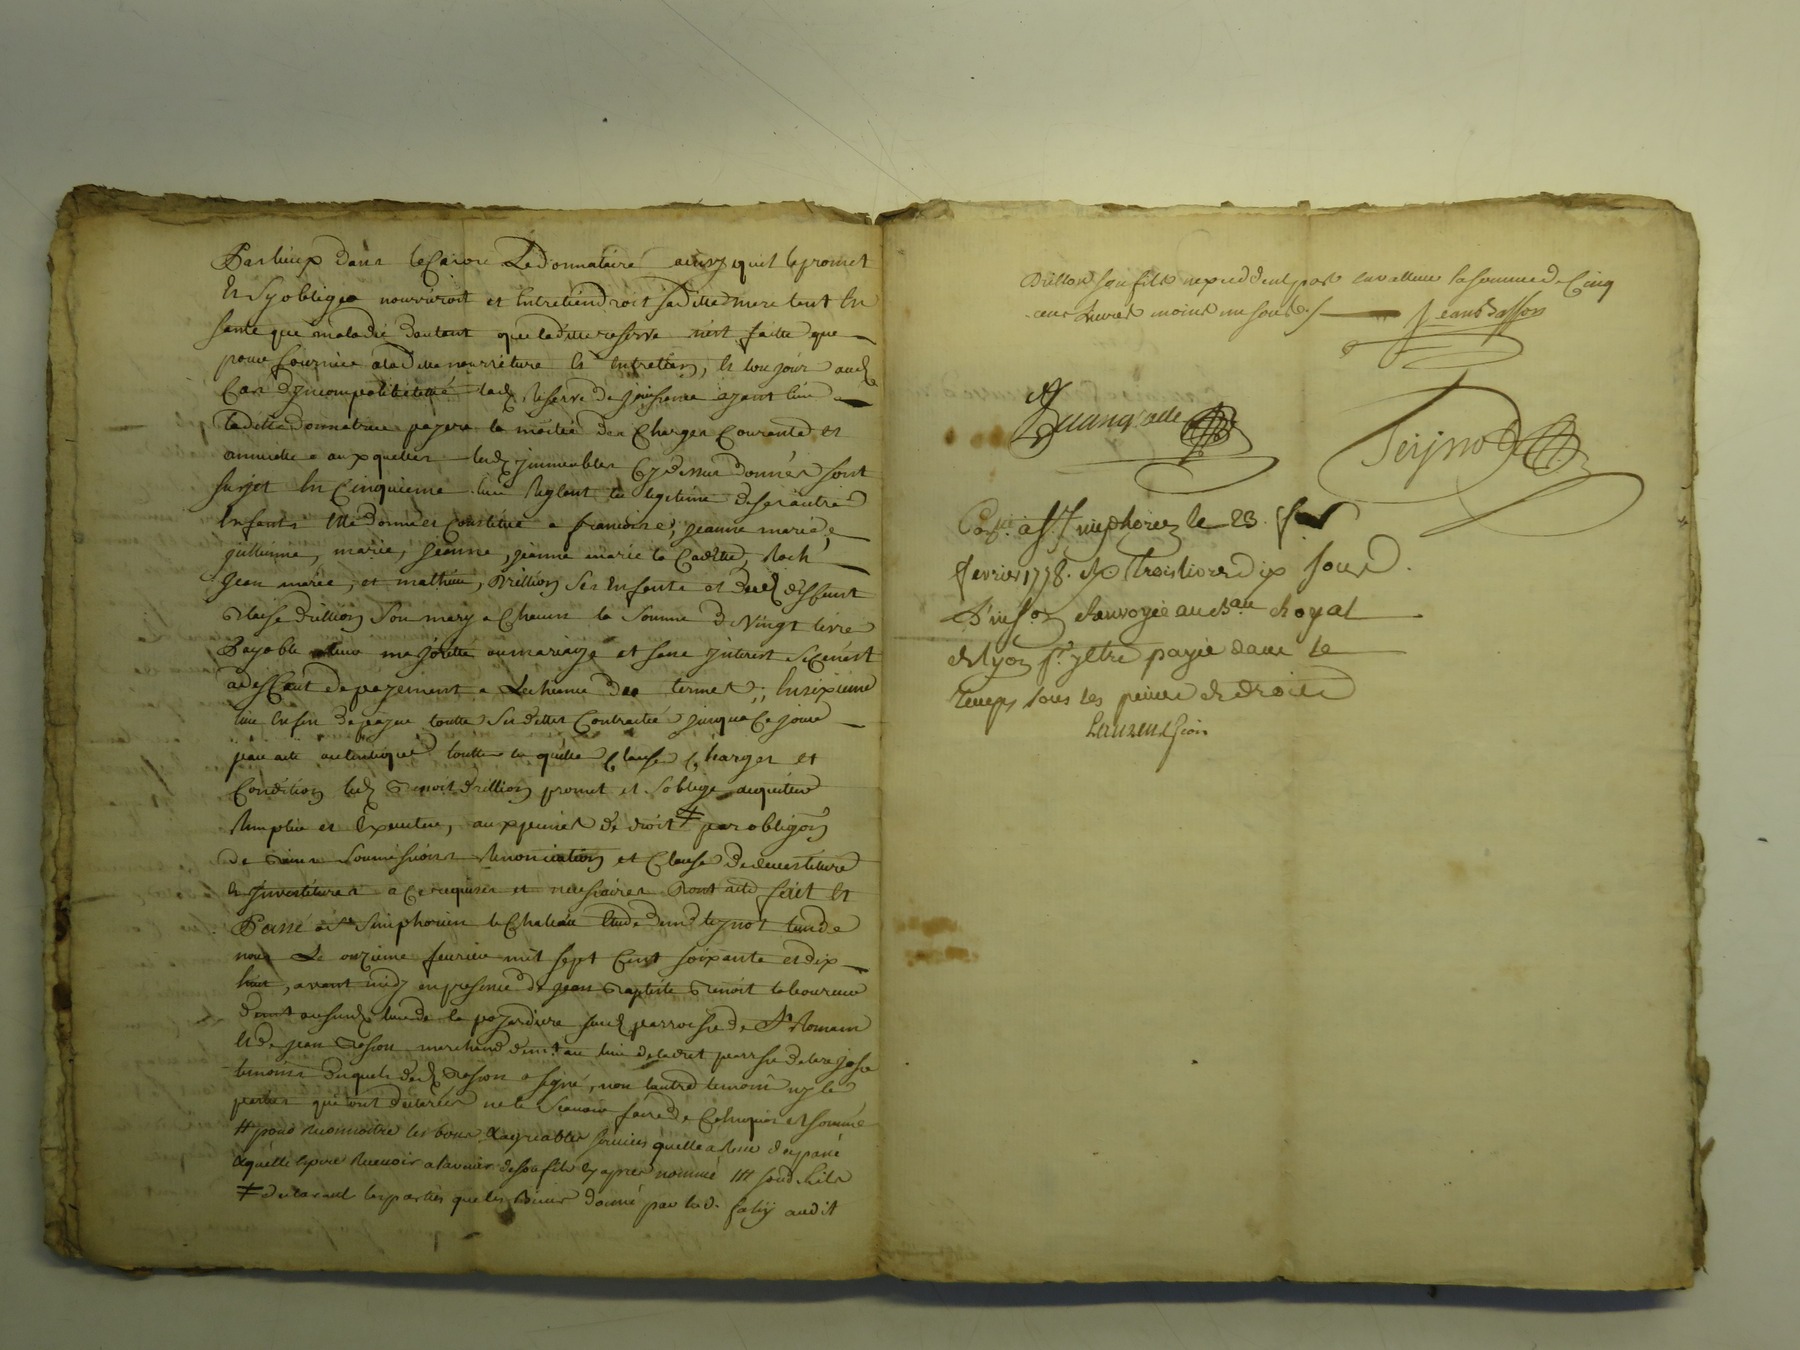 Par lieux dans le Cas ou Le donnataire ainsy quil le promet
Et Sy oblige nourriroit et Entretiendroit sa ditte mere tant En
sante que maladie dautant que laditte reserve n'est faitte que
pour fournir a laditte nourriture Et Entretien, Et toujour aud.
Cas d'yncompatibilitté lad. Reserve de jouissance ayant lieu
laditte donnatrice payera la moitié des Charges Courantes et
annuelles auxquelles lesd. ymmeubles Cy dessus donnés sont
sujet En Cinquieme lieu Reglant la legitime de ses autres
Enfants Elle donne et Constitue a francoise, jeanne marie,
guillienne, marie, jeanne, jeanne marie la Cadette, Roch,
Jean marie, et mathieu, Drillion ses Enfants et dud. deffunt
Blaise drillion Son mary a Chacun la Somme de Vingt livre
Payable a leur majorité ou mariage et sans ynterest Si Ce n'est
a deffaut de payement a Lecheance des termes; En sixieme
lieu Enfin de payer toutte ses dettes Contractée jusqua Ce jour
par acte autentique toutte les quelles Clauses Charges et
Condition led. Benoit drillion promet et soblige acquitter
Remplir et Executer, aux peines de droit ≠ par obligon
de biens Soumissions Renonciation et Clause de devestiture
et ynvestiture a Ce requises et necessaires Dont acte fait Et
Passé a St Simphorien le Chateau Etude dud. Peynot lun de
nous Le onzieme fevrier mil sept Cent soixante et dix
huit, avant midy en presence de Jean Baptiste Benoit laboureur
demt au lieu de la pojardiere susd. parroisse de St Romain
Et de jean Basson marchand demt au lieu parrsse de larajasse
temoins desquels led. Basson a signé, non lautre temoin ny les
parties qui ont declarées ne le Scavoir faire de Ce Enquis et sommé
# pour reconnoitre les bons & agreables services quelle a
& quelle Espere recevoir a lavenir de son fils Cy apres nommé
≠ declarant les parties que les Biens donné par lad. faly audit
Drillion son fils nexcedent pas en valleur la somme de Cinq
cent Livres moins un sould ./. Jean Basson
Peynot
Con.lé a St Simphorien le 23.
fevrier 1778. R. Trois livres dix sous.
L'inson. renvoyée au Bau Royal
de Lyon pr. y Etre payée dans le
temps sous les peines de droits